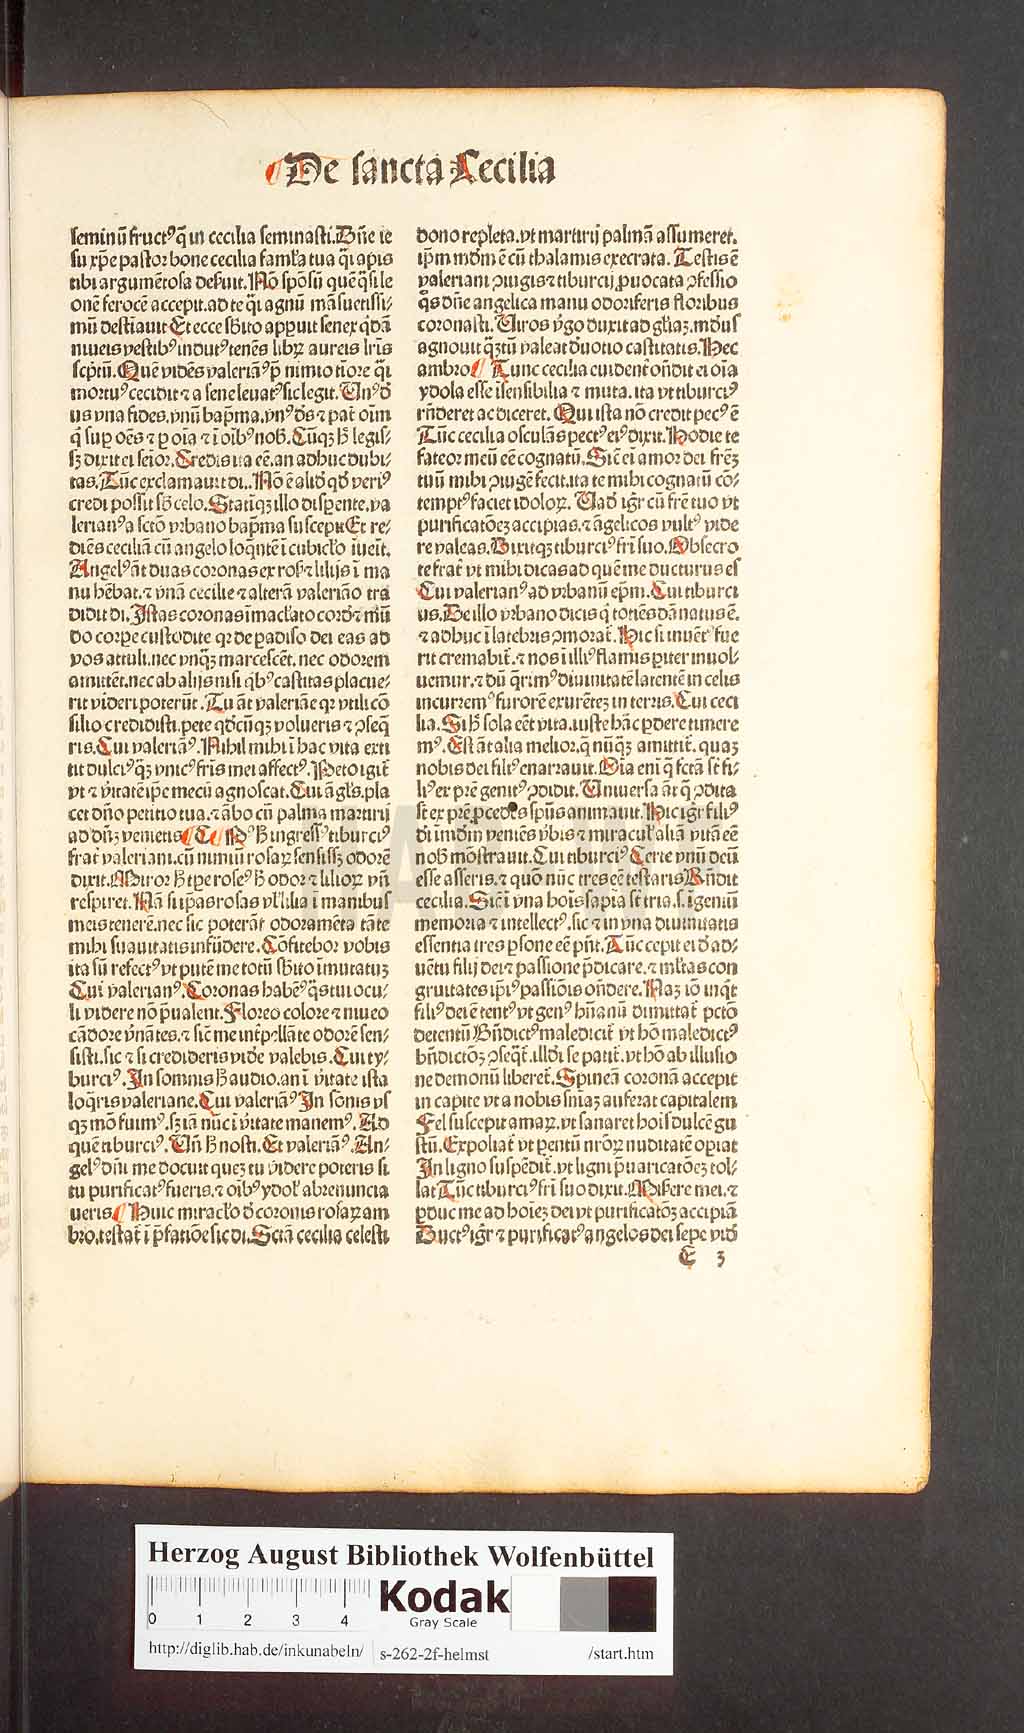 De sancta Cecilia
seminū fruct⁹ q̄ in cecilia seminasti. Dn̄e ie
su xp̄e pastor bone cecilia famĺa tua q̈i apis
tibi argumētosa deẜuit. Nā spōsū quē q̈si le
onē ferocē accepit. ad te q̈i agnū māsuetissi/
mū destiavit Et ecce sb̄ito apparuit senex q̇dā
niueis vestib⁹ indut⁹ tenēs libꝝ aureis lr̄is
sc̄ptū. Quē vidēs valerian⁹ p̄ nimio tiore q̈i
mortu⁹ cecidit ⁊ a sene leuat⁹ sic legit. Vn⁹ d̄
us vna fides. vnū bap̄ma. vn⁹ de⁹ ⁊ pat̄ oīm
q̇ suꝑ oēs ⁊ ꝑ oīa ⁊ ī oīb⁹ nob̄. Cūqꝫ h̄ legis/
sꝫ dixit ei seīor. Credis ita eē. an adhuc dubi/
tas. Tūc exclamauit di.. Nō ē aliḋ qḋ veri⁹
credi possit sb̄ celo. Statiqꝫ illo disꝑente. va
lerian⁹ a sctō vrbano bap̄ma suscepit Et re/
diēs ceciliā cū angelo loq̄ntē ī cubicĺo iūeīt.
Angel⁹ āt duas coronas ex ros̄ ⁊ lilijs ī ma
nu hēbat. ⁊ vnā cecilie ⁊ alterā valeriāo tra
didit di. Istas coronas īmacĺato corḋ ⁊ mū
do corꝑe custodite qꝛ de ꝑadiso dei eas ad
vos attuli. nec vnqꝫ marcescēt. nec odorem
amittēt. nec ab alijs nisi q̇b⁹ castitas placue/
rit videri poterūt. Tu āt valeriāe qꝛ vtili cō
silio credidisti. pete qḋcūqꝫ volueris ⁊ ꝯseq̄
ris. Cui valeriā⁹. Nihil mihi ī hac vita exti
tit dulci⁹ qꝫ vnic⁹ fr̄is mei affect⁹. Peto igit̄
vt ⁊ v̇itatē ip̄e mecū agnoscat. Cui āgĺs. pla
cet dn̄o petitio tua. ⁊ ābo cū palma martirij
ad dn̄ꝫ venietis Ad h̄ ingress⁹ tiburci⁹
frat̄ valeriani. cū nimiū rosaꝝ sensissꝫ odorē
dixit. Miror h̄ tꝑe rose⁹ h̄ odor ⁊ lilioꝝ vn̄
respiret. Nā si ip̄as rosas vĺ lilia ī manibus
meis tenerē. nec sic poterāt odorameta tāte
mihi suauitatis infūdere. Cōfitebor vobis
ita sū refect⁹ vt putē me totū sb̄ito īmutatuꝫ
Cui valerian⁹. Coronas habem⁹ q̈s tui ocu/
li videre nō p̄ualent. Floreo colore ⁊ niueo
cādore v̇nātes. ⁊ sic̄ me int̄ꝑellāte odorē sen/
sisti. sic ⁊ si credideris vide valebis. Cui ty/
burci⁹. In somnis h̄ audio. an ī v̇itate ista
loq̄ris valeriane. Cui valeriā⁹ In sōnis vs̄
qꝫ mō fuim⁹. sꝫ iā nūc ī v̇itate manem⁹. Ad
quē tiburci⁹. Vn̄ h̄ nosti. Et valeriā⁹. An/
gel⁹ dn̄i me docuit queꝫ tu videre poteris si
tu purificat⁹ fueris. ⁊ oīb⁹ ydoĺ abrenuncia
ueris Huic miracĺo d̄ coronis rosaꝝ am
bro. testat̄ ī p̄fatiōe sic di. Sctā cecilia celesti
dono repleta. vt martirij palmā assumeret.
ip̄m mūdū ē cū thalamis execrata. Testis ē
valeriani ꝯiugis ⁊ tiburcij ꝓuocata ꝯfessio
q̈s dn̄e angelica manu odoriferis floribus
coronasti. Viros v̇go duxit ad gĺiaꝫ. mūdus
agnouit qꝫtū valeat d̄uotio castitatis. Hec
ambro Tunc cecilia euidenť on̄dit ei oīa
ydola esse īsensibilia ⁊ muta. ita vt tiburci⁹
rn̄deret ac diceret. Qui ista nō credit pec⁹ ē
Tūc cecilia osculās pect⁹ ei⁹ dixit. Hodie te
fateor meū eē cognatū. Sic̄ eī amor dei fr̄eꝫ
tuū mihi ꝯiugē fecit. ita te mihi cognatū cō/
tempt⁹ faciet idoloꝝ. Vad̄ igr̄ cū fr̄e tuo vt
purificatōeꝫ accipias. ⁊ āgelicos vult⁹ vide
re valeas. Dixitqꝫ tiburci⁹ fr̄i suo. Obsecro
te frať vt mihi dicas ad quē me ducturus es
Cui valerian⁹ ad vrbanū ep̄m. Cui tiburci
us. De illo vrbano dicis q̇ totiēs dānatus ē.
⁊ adhuc ī latebris ꝯmorat̄. Hic si inuēt⁹ fue
rit cremabit̄. ⁊ nos ī illi⁹ flāmis ꝑiter inuol/
uemur. ⁊ dū q̄rim⁹ diuinitatē latentē in celis
incurrem⁹ furorē exurētez in terris. Cui ceci
lia. Si h̄ sola eēt vita. iuste hāc ꝑdere timere
m⁹. Est āt alia melior. q̄ nūqꝫ amittit̄. quaꝫ
nobis dei fili⁹ enarrauit. Oīa eni q̄ fcta sť fi/
li⁹ ex pr̄e genit⁹ ꝯdidit. Vniuersa āt q̄ ꝯdita
sť ex pr̄e ꝓcedēs spūs animauit. Hic igr̄ fili⁹
di īmūdū veniēs v̇bis ⁊ miraculꝭ aliā vitā eē
nob̄ mōstrauit. Cui tiburci⁹ Certe vnū deū
esse asseris. ⁊ quō nūc tres eē testaris Rn̄dit
cecilia. Sic̄ ī vna hoīs sapīa sť tria. s. īgeniū
memoria ⁊ intellect⁹. sic ⁊ in vna diuinitatis
essentia tres ꝑsone eē pn̄t. Tūc cepit ei d̄ ad/
uētu filij dei ⁊ passione p̄dicare. ⁊ mĺtas con
gruitates ip̄i⁹ passiōis on̄dere. Naꝫ iō inq̄t
fili⁹ dei ē tent⁹ vt gen⁹ hn̄anū dimittat̄ pctō
detentū Bn̄dict⁹ maledicit̄ vt hō maledict⁹
bn̄dictōꝫ ꝯseq̄t̄. illudi se patit̄. vt hō ab illusio
ne demonū liberet̄. Spineā coronā accepit
in capite vt a nobis sn̄iaꝫ auferat capitalem
Fel suscepit amaꝝ. vt sanaret hoīs dulcē gu
stū. Expoliat̄ vt parentū nr̄oꝝ nuditatē oꝑiat
In ligno suspēdit̄. vt ligni p̄uaricatōeꝫ tol/
lat Tūc tiburci⁹ fr̄i suo dixit. Miẜere mei. ⁊
ꝑduc me ad hoīeꝫ dei vt purificatōꝫ accipiā
Duct⁹ igr̄ ⁊ purificat⁹ angelos dei sepe vid̄
E 3
Herzog August Bibliothek Wolfenbüttel
0 1 2 3 4
Kodak
Gray Scale
http://diglib.hab.de/inkunabeln/ s-262-2f-helmst /start.htm
HAB